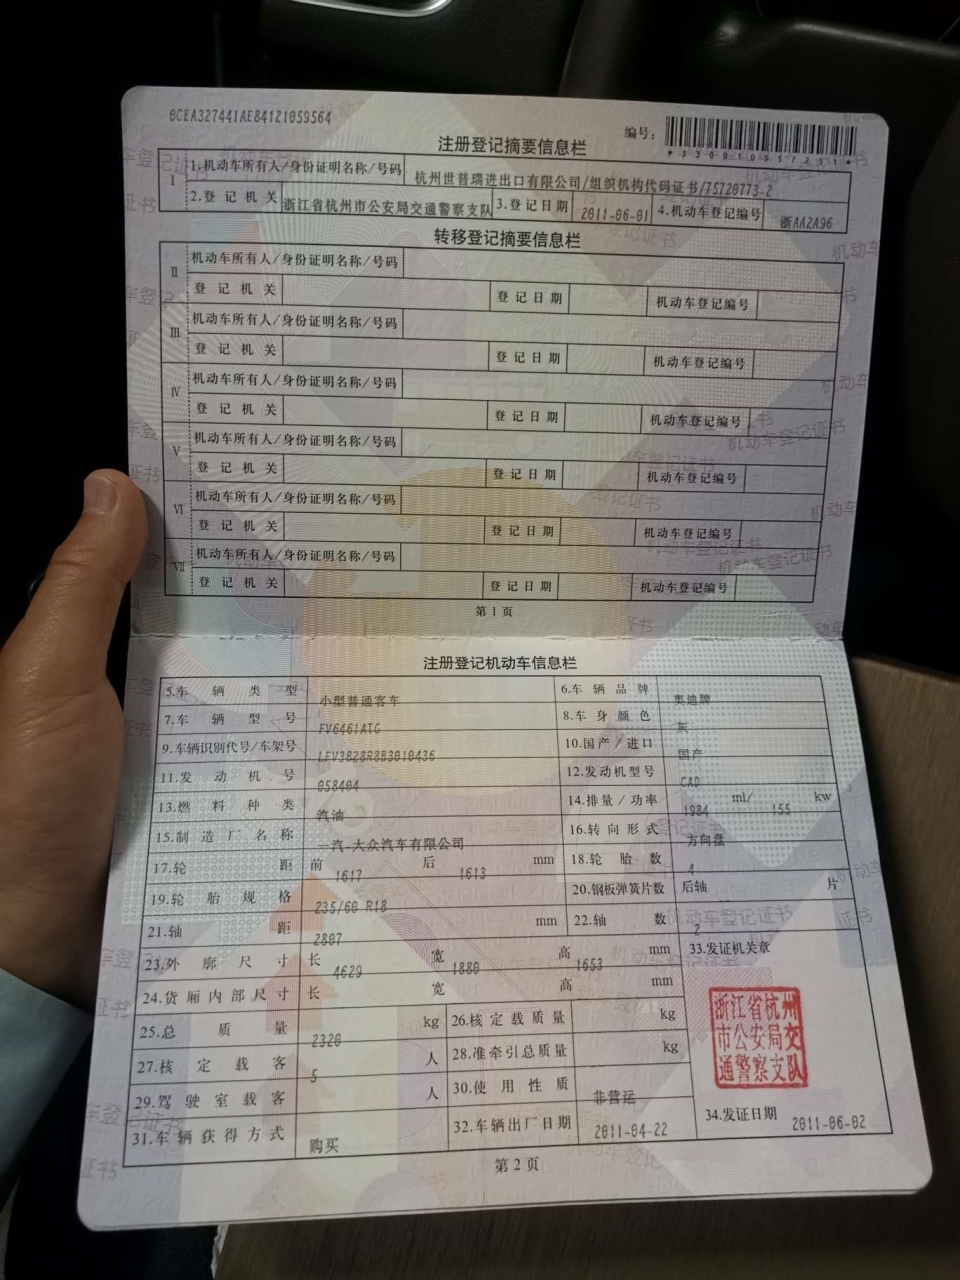 0CEA327441AE84121059564
编号：
*330010557251*
注册登记摘要信息栏
Ⅰ 1.机动车所有人/身份证明名称/号码 杭州世普瑞进出口有限公司/组织机构代码证书/75720773-2
2.登记机关 浙江省杭州市公安局交通警察支队 3.登记日期 2011-06-01 4.机动车登记编号 浙AA2A96
转移登记摘要信息栏
Ⅱ 机动车所有人/身份证明名称/号码
登记机关 登记日期 机动车登记编号
Ⅲ 机动车所有人/身份证明名称/号码
登记机关 登记日期 机动车登记编号
Ⅳ 机动车所有人/身份证明名称/号码
登记机关 登记日期 机动车登记编号
Ⅴ 机动车所有人/身份证明名称/号码
登记机关 登记日期 机动车登记编号
Ⅵ 机动车所有人/身份证明名称/号码
登记机关 登记日期 机动车登记编号
Ⅶ 机动车所有人/身份证明名称/号码
登记机关 登记日期 机动车登记编号
第1页
注册登记机动车信息栏
5.车辆类型 小型普通客车 6.车辆品牌 奥迪牌
7.车辆型号 FV6461ATG 8.车身颜色 灰
9.车辆识别代号/车架号 LFV3B28R8B3010436 10.国产/进口 国产
11.发动机号 058404 12.发动机型号 CAD
13.燃料种类 汽油 14.排量/功率 1984 ml/ 155 kw
15.制造厂名称 一汽-大众汽车有限公司 16.转向形式 方向盘
17.轮距 前 1617 后 1613 mm 18.轮胎数 4
19.轮胎规格 235/60 R18 20.钢板弹簧片数 后轴 片
21.轴距 2807 mm 22.轴数 2
23.外廓尺寸 长 4629 宽 1880 高 1653 mm 33.发证机关章
24.货厢内部尺寸 长 宽 高 mm
25.总质量 2320 kg 26.核定载质量 kg
27.核定载客 5 人 28.准牵引总质量 kg
29.驾驶室载客 人 30.使用性质 非营运
31.车辆获得方式 购买 32.车辆出厂日期 2011-04-22
浙江省杭州
市公安局交
通警察支队
34.发证日期 2011-06-02
第2页